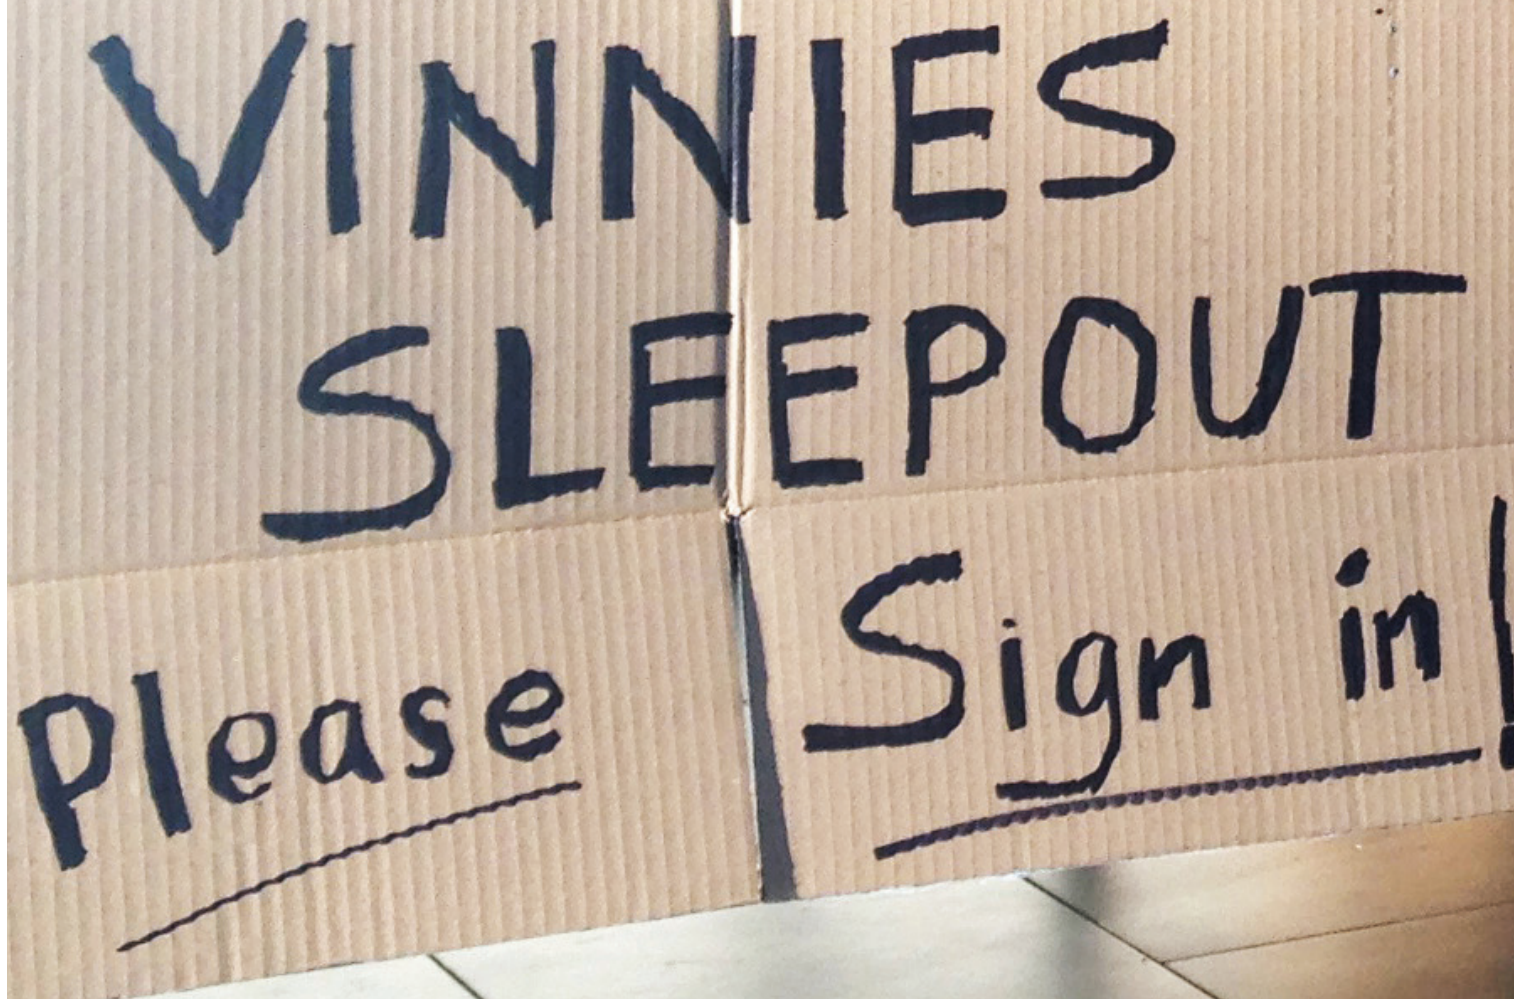 VINNIES
SLEEPOUT
Please Sign in!